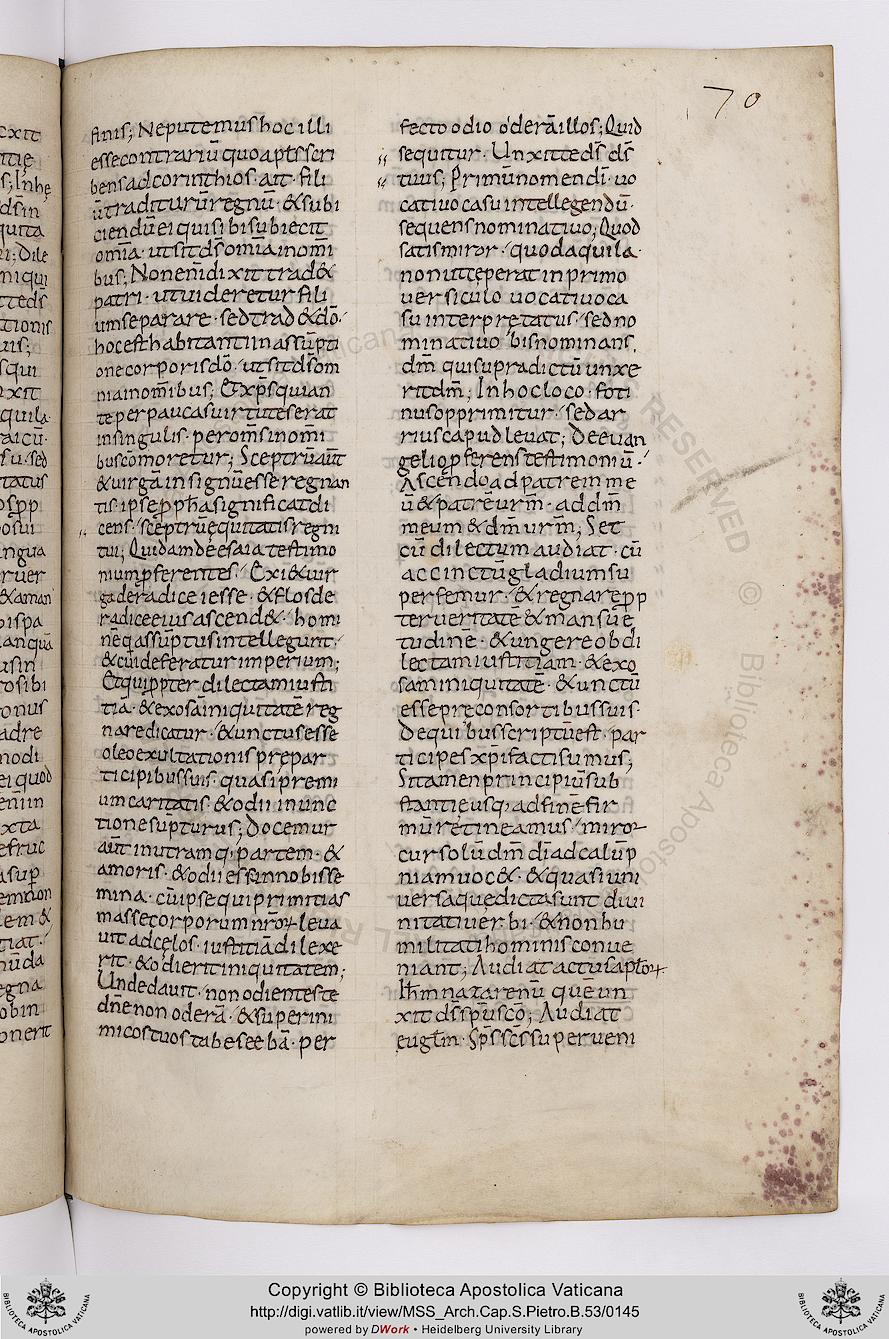 70
finis; Neputemus hoc illi
esse contrariū quo apłs scri
bens ad corinthios · ait · fili
ū traditurū regnū · & subi
ciendū ei qui sibi subiecit
om̄ia · ut sit d̄s om̄ia in om̄i
bus; Non enī dixit trad&
patri · ut videretur fili
um separare · sed trad& d̄o ·
hoc est habitanti in assūpti
one corporis d̄o · ut sit d̄s om
nia in om̄ibus; Et xp̄s qui an
te per paucas uirtutes erat
in singulis · per om̄s in om̄i
bus cōmoretur; Sceptrū aūt
& uirgā insignū esse regnan
tis · ipse pph̄a significat di
cens · sceptrū ęquitatis regni
tui; Quidam de esaia testimo
nium pferentes · Exi& uir
ga de radice iesse · & flos de
radice eius ascend& · homi
nēq assūptus intellegunt ·
& cūi deferatur imperium;
Et qui ppter dilectam iusti
tia · & exosā iniquitatē reg
nare dicatur · & unctus esse
oleo exultationis pre par
ticipibus suis · quasi premi
um caritatis · & odii in unc
tione sūpturus; Docemur
aūt in utramq; partem · &
amoris · & odii esse in nobis se
mina · cū ipse qui primitias
masse corporum nr̄oꝝ leua
uit ad cęlos · iustitiā dilexe
rit · & odierit iniquitatem;
Unde dauit · non odientes te
dn̄e non oderā · & super ini
micos tuos tabeseebā · per
fecto odio oderā illos; Quid
sequitur · Unxit te d̄s d̄s
tuus; Primū nomen dī · uo
catiuo casu intellegendū ·
sequens nominatiuo; Quod
satis miror · quod aquila ·
non ut cęperat in primo
uersiculo uocatiuo ca
su interprętatus · sed no
minatiuo bis nominans
dm̄ qui supradictū unxe
rit dm̄; In hoc loco · foti
nus opprimitur · sed ar
rius capud leuat; De euan
gelio pferens testimoniū ·
Ascendo ad patrem me
ū & patrē urm̄ · ad dm̄
meum & dm̄ urm̄; Set
cū dilectum audiat · cū
accinctū gladium su
per femur · & regnare pp
ter ueritatē & mansuę
tudinē · & ungere ob di
lectam iustitiam · & exo
sam iniquitatē · & unctū
esse prę consortibus suis ·
De quibus scriptū est · par
ticipes xp̄i facti sumus;
Si tamen principiū sub
stantię usq; ad finē fir
mū retineamus · miroꝛ
cur solū dm̄ dī ad calūp
niam uoc& · & quasi uni
uersa quę dicta sunt diui
nitati uerbi · & non hu
militati hominis conue
niant; Audiat actus aptoꝝ
Ih̄m nazarenū que un
xit d̄s sp̄u sc̄o; Audiat
eugłm · Sp̄s sc̄s superueni
Copyright © Biblioteca Apostolica Vaticana
http://digi.vatlib.it/view/MSS_Arch.Cap.S.Pietro.B.53/0145
powered by DWork • Heidelberg University Library